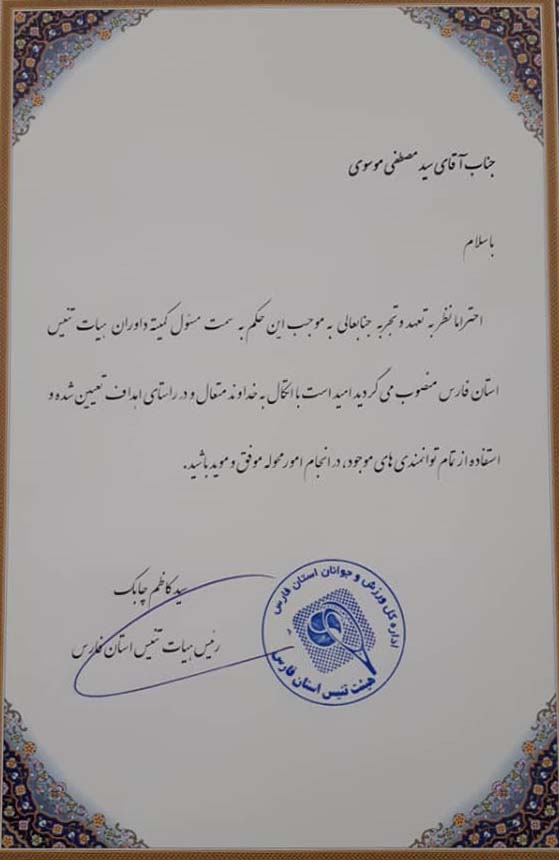 جناب آقای سید مصطفی موسوی
باسلام
احتراما نظر به تعهد و تجربه جنابعالی به موجب این حکم به سمت مسئول کمیته داوران هیات تنیس
استان فارس منصوب می گردید امید است با اتکال به خداوند متعال و در راستای اهداف تعیین شده و
استفاده از تمام توانمندی های موجود، در انجام امور محوله موفق و موید باشید.
سید کاظم چابک
رئیس هیات تنیس استان فارس
اداره کل ورزش و جوانان استان فارس
هیئت تنیس استان فارس